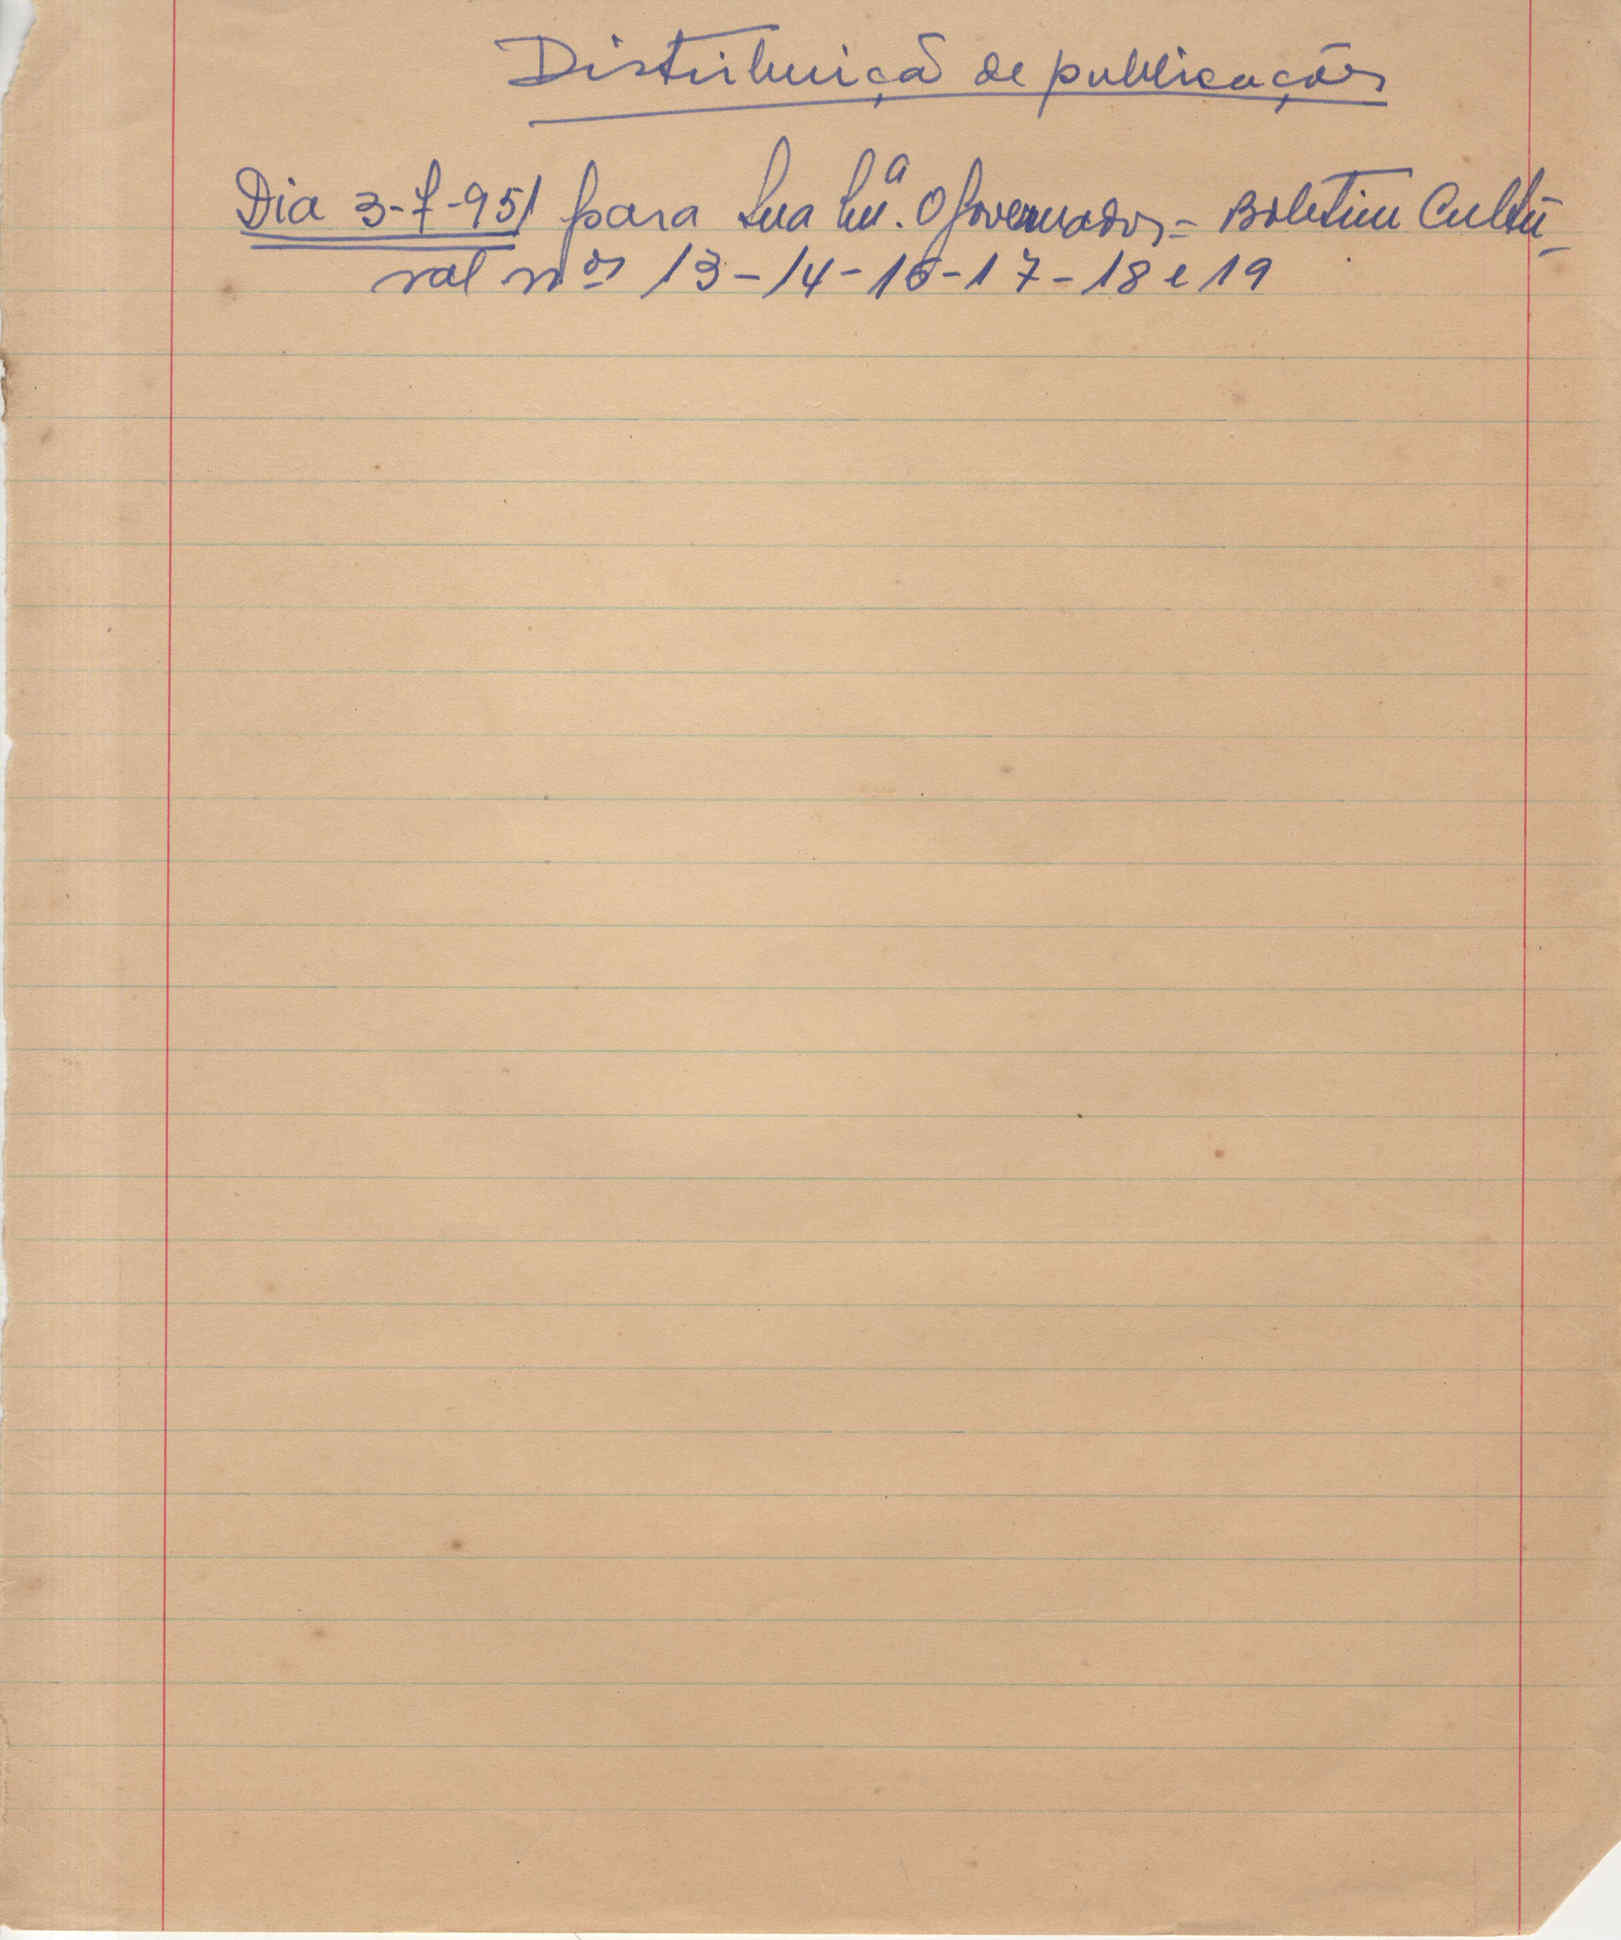 Distribuição de publicações
Dia 3-7-951 para Sua Exª. O Governador = Boletim Cultu-
ral nos 13-14-16-17-18 e 19